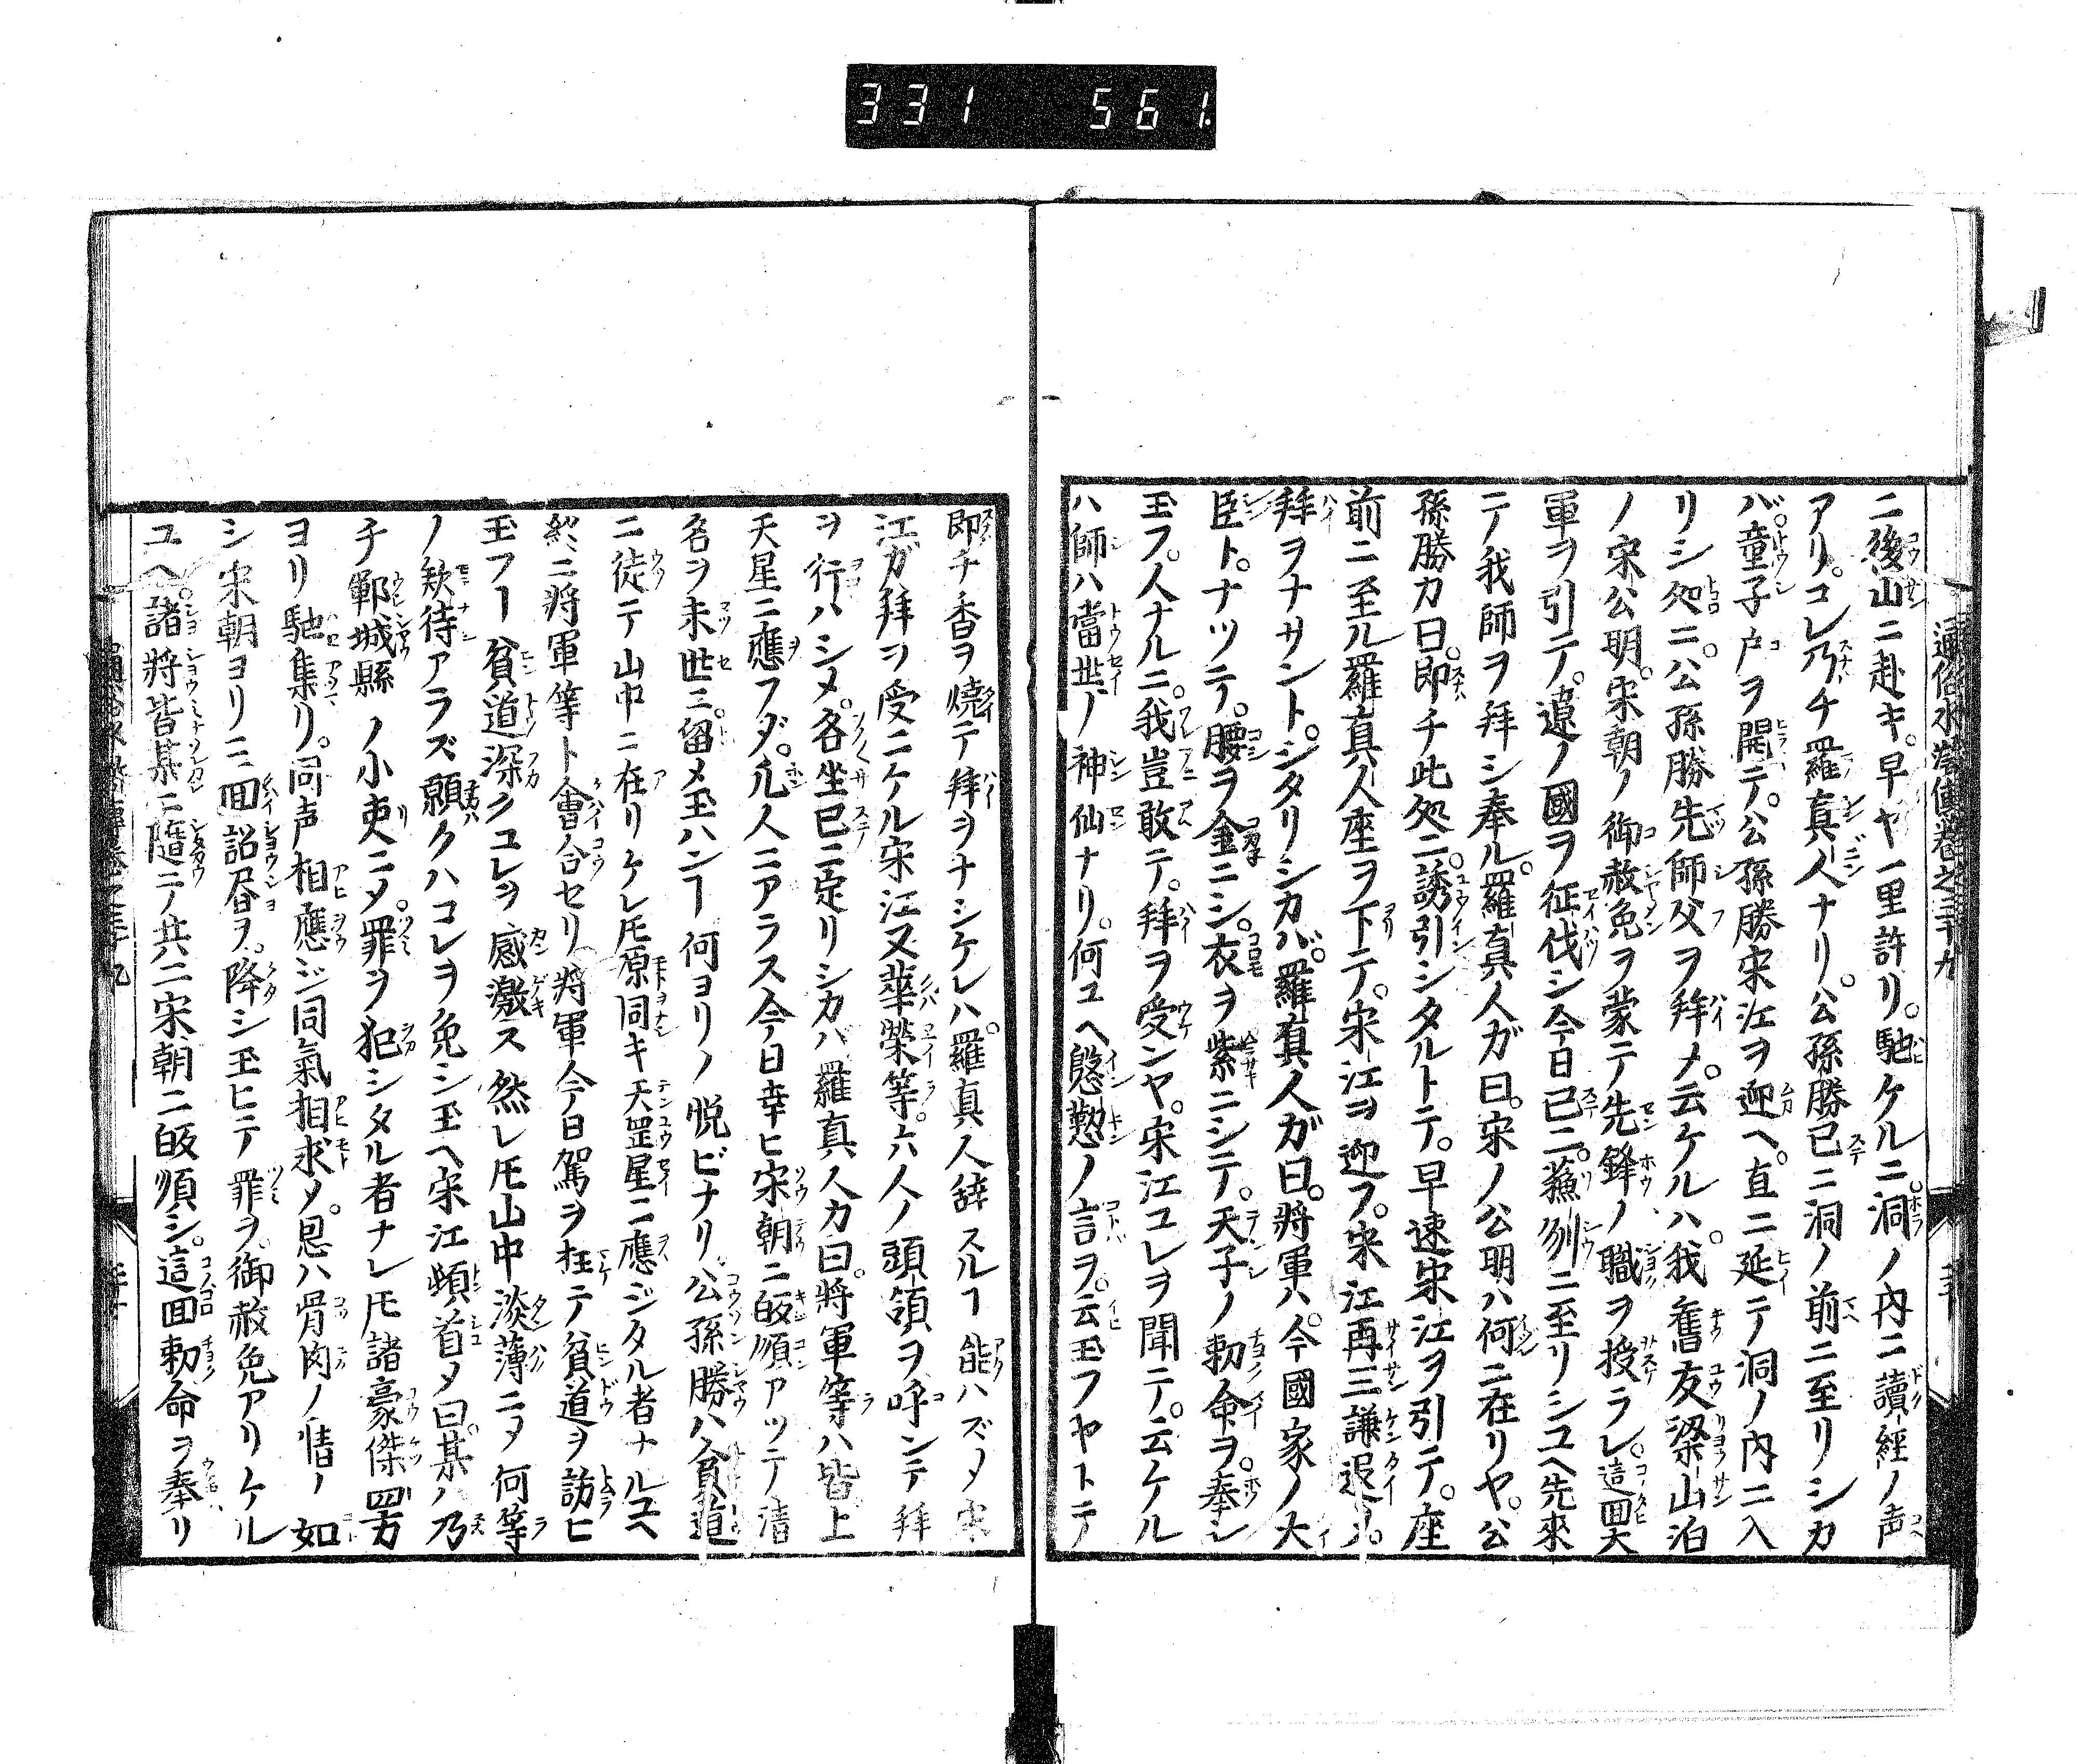 331 561.
通俗水滸傳卷之三十九
ニ後山ニ赴キ。早ヤ一里許リ。馳ケルニ。洞ノ內ニ讀經ノ声
アリ。コレ乃チ羅真人ナリ。公孫勝已ニ洞ノ前ニ至リシカ
バ。童子戸ヲ開テ。公孫勝宋江ヲ迎ヘ。直ニ延テ洞ノ內ニ入
リシ処ニ。公孫勝先師父ヲ拜メ。云ケルハ。我舊友梁山泊
ノ宋公明。宋朝ノ御赦免ヲ蒙テ先鋒ノ職ヲ授ラレ。這回大
軍ヲ引テ。遼ノ國ヲ征伐シ今日已ニ。蘓州ニ至リシユヘ先來
テ我師ヲ拜シ奉ル。羅真人ガ曰。宋ノ公明ハ何ニ在リヤ。公
孫勝カ曰。即チ此処ニ。誘引シタルトテ。早速宋江ヲ引テ。座
前ニ至ル羅真人座ヲ下テ。宋江ヲ迎フ。宋江再三謙退メ。
拜ヲナサント。シタリシカバ。羅真人ガ曰。將軍ハ。今國家ノ大
臣ト。ナツテ。腰ヲ金ニシ。衣ヲ紫ニシテ。天子ノ勅命ヲ。奉シ
玉フ。人ナルニ。我豈敢テ。拜ヲ受ンヤ。宋江コレヲ聞テ。云ケル
ハ師ハ當世ノ神仙ナリ。何ユヘ慇懃ノ言ヲ。云玉フヤトテ
即チ香ヲ燒テ拜ヲナシケレハ。羅真人辞スルヿ能ハズメ宋
江ガ拜ヲ受ニケル宋江又華榮等。六人ノ頭領ヲ呼ンテ拜
ヲ行ハシメ。各坐已ニ定リシカバ羅真人カ曰。將軍等ハ皆上
天星ニ應フダ。凡人ニアラス今日幸ヒ宋朝ニ皈順アツテ清
名ヲ末世ニ留メ玉ハンヿ何ヨリノ悅ビナリ公孫勝ハ貧道
ニ徒テ山中ニ在リケレ𪜈原同キ天罡星ニ應ジタル者ナルユヘ
終ニ將軍等ト會合セリ將軍今日駕ヲ枉テ貧道ヲ訪ヒ
玉フヿ貧道深クコレヲ感激ス然レ𪜈山中淡薄ニメ何等
ノ欵待アラズ願クハコレヲ免シ玉ヘ宋江頓首メ曰某ハ乃
チ鄆城縣ノ小吏ニメ。罪ヲ犯シタル者ナレ𪜈諸豪傑四方
ヨリ馳集リ。同声相應ジ同氣相求メ。恩ハ骨肉ノ情ノ如
シ宋朝ヨリ三回詔書ヲ。降シ玉ヒテ罪ヲ。御赦免アリケル
ユヘ。諸將皆某ニ隨テ共ニ宋朝ニ皈順シ。這回勅命ヲ奉リ